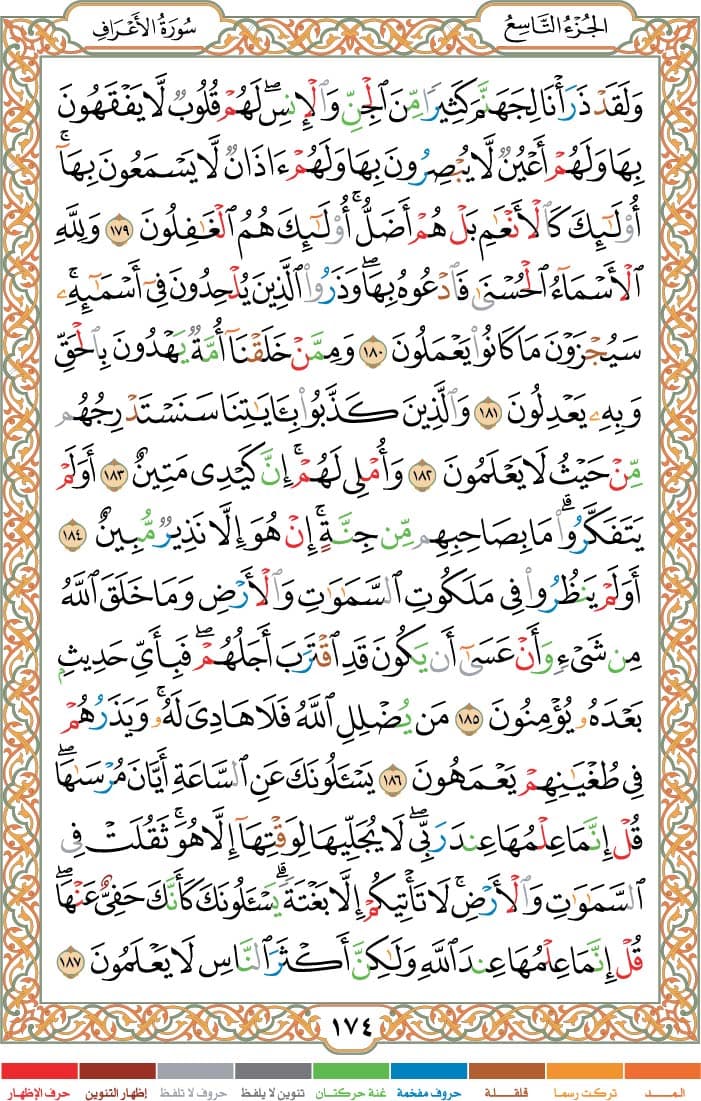 الجُزْءُ التَّاسِعُ
سُورَةُ الأَعْرَافِ
وَلَقَدْ ذَرَأْنَا لِجَهَنَّمَ كَثِيرًا مِّنَ ٱلْجِنِّ وَٱلْإِنسِ ۖ لَهُمْ قُلُوبٌ لَّا يَفْقَهُونَ
بِهَا وَلَهُمْ أَعْيُنٌ لَّا يُبْصِرُونَ بِهَا وَلَهُمْ ءَاذَانٌ لَّا يَسْمَعُونَ بِهَآ ۚ
أُو۟لَـٰٓئِكَ كَٱلْأَنْعَـٰمِ بَلْ هُمْ أَضَلُّ ۚ أُو۟لَـٰٓئِكَ هُمُ ٱلْغَـٰفِلُونَ ١٧٩ وَلِلَّهِ
ٱلْأَسْمَآءُ ٱلْحُسْنَىٰ فَٱدْعُوهُ بِهَا ۖ وَذَرُوا۟ ٱلَّذِينَ يُلْحِدُونَ فِىٓ أَسْمَـٰٓئِهِۦ ۚ
سَيُجْزَوْنَ مَا كَانُوا۟ يَعْمَلُونَ ١٨٠ وَمِمَّنْ خَلَقْنَآ أُمَّةٌ يَهْدُونَ بِٱلْحَقِّ
وَبِهِۦ يَعْدِلُونَ ١٨١ وَٱلَّذِينَ كَذَّبُوا۟ بِـَٔايَـٰتِنَا سَنَسْتَدْرِجُهُم
مِّنْ حَيْثُ لَا يَعْلَمُونَ ١٨٢ وَأُمْلِى لَهُمْ ۚ إِنَّ كَيْدِى مَتِينٌ ١٨٣ أَوَلَمْ
يَتَفَكَّرُوا۟ ۗ مَا بِصَاحِبِهِم مِّن جِنَّةٍ ۚ إِنْ هُوَ إِلَّا نَذِيرٌ مُّبِينٌ ١٨٤
أَوَلَمْ يَنظُرُوا۟ فِى مَلَكُوتِ ٱلسَّمَـٰوَٰتِ وَٱلْأَرْضِ وَمَا خَلَقَ ٱللَّهُ
مِن شَىْءٍ وَأَنْ عَسَىٰٓ أَن يَكُونَ قَدِ ٱقْتَرَبَ أَجَلُهُمْ ۖ فَبِأَىِّ حَدِيثٍۭ
بَعْدَهُۥ يُؤْمِنُونَ ١٨٥ مَن يُضْلِلِ ٱللَّهُ فَلَا هَادِىَ لَهُۥ ۚ وَيَذَرُهُمْ
فِى طُغْيَـٰنِهِمْ يَعْمَهُونَ ١٨٦ يَسْـَٔلُونَكَ عَنِ ٱلسَّاعَةِ أَيَّانَ مُرْسَىٰهَا ۖ
قُلْ إِنَّمَا عِلْمُهَا عِندَ رَبِّى ۖ لَا يُجَلِّيهَا لِوَقْتِهَآ إِلَّا هُوَ ۚ ثَقُلَتْ فِى
ٱلسَّمَـٰوَٰتِ وَٱلْأَرْضِ ۚ لَا تَأْتِيكُمْ إِلَّا بَغْتَةً ۗ يَسْـَٔلُونَكَ كَأَنَّكَ حَفِىٌّ عَنْهَا ۖ
قُلْ إِنَّمَا عِلْمُهَا عِندَ ٱللَّهِ وَلَـٰكِنَّ أَكْثَرَ ٱلنَّاسِ لَا يَعْلَمُونَ ١٨٧
١٧٤
المـــد تركت رسما قلقـــلة حروف مفخمة غنة حركتان تنوين لا يلفظ حروف لا تلفظ إظهار التنوين حرف الإظهار